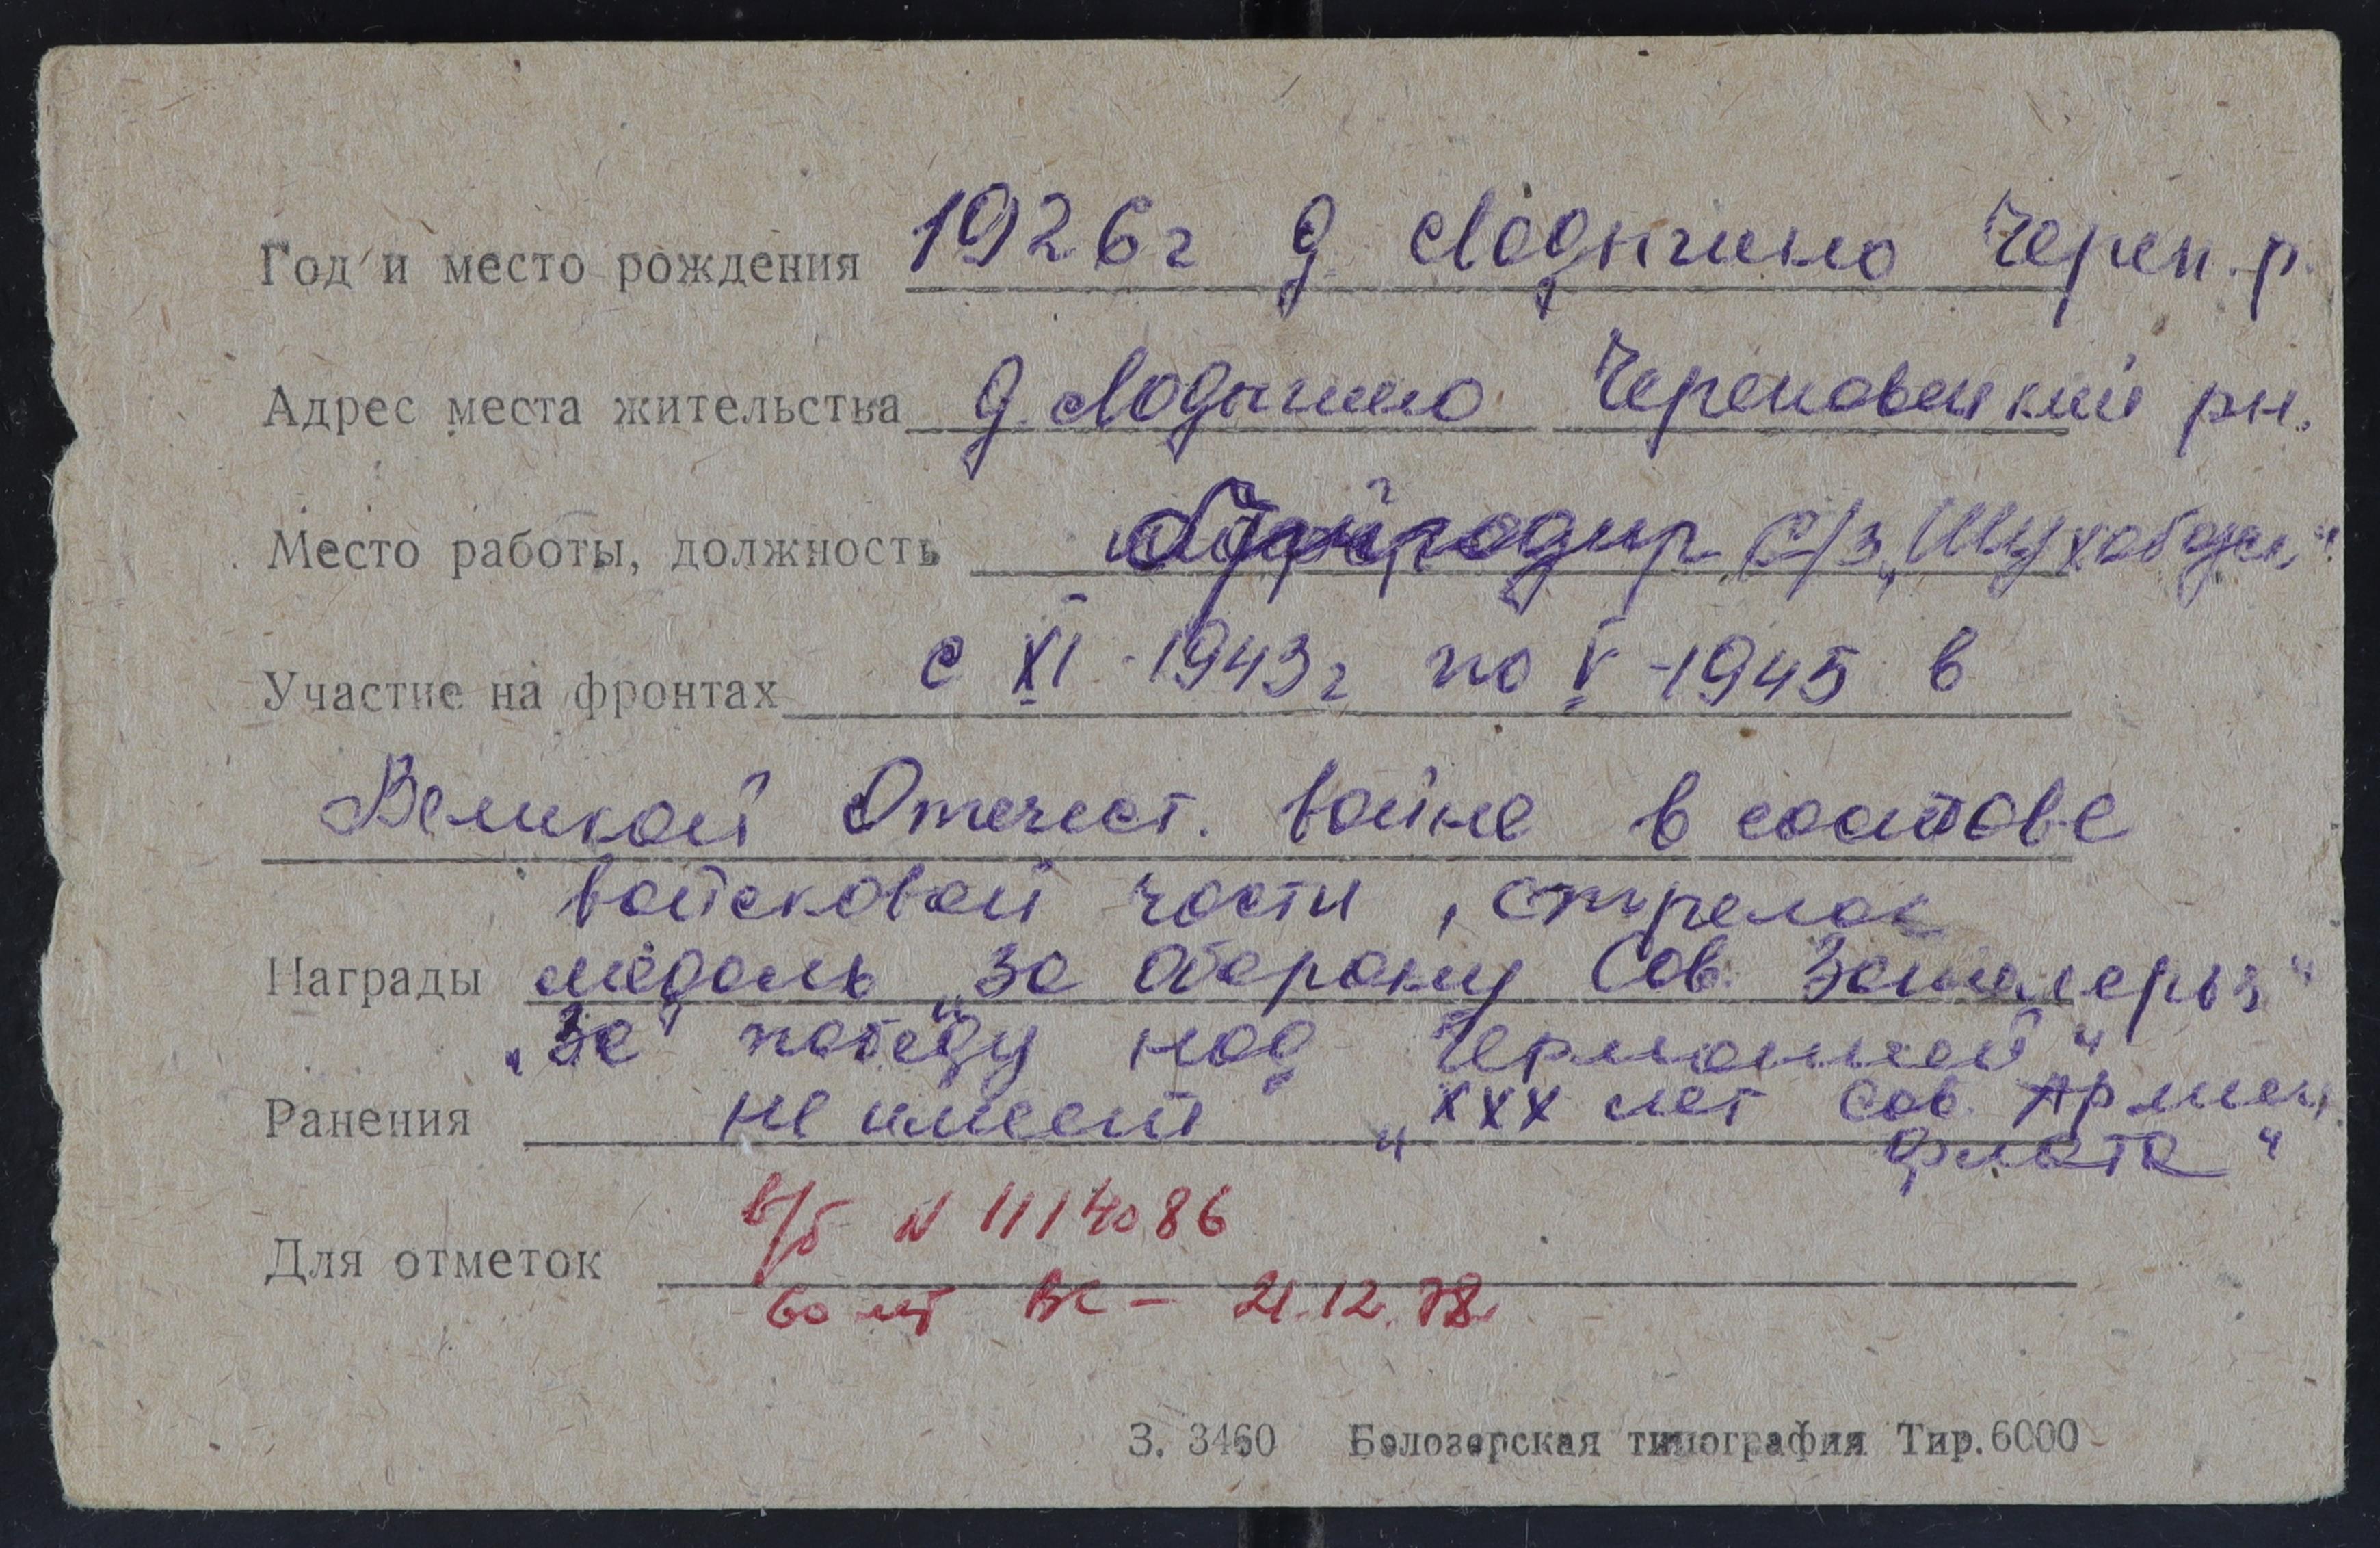 Год и место рождения 1926г д. Лодыгино Череп. р.
Адрес места жительства д. Лодыгино Череповецкий рн.
Место работы, должность бригадир с/з „Шухободск."
Участие на фронтах с XI-1943г по V-1945 в
Великой Отечест. войне в составе
войсковой части, стрелок
Награды медаль „За оборону Сов. Заполярья"
„За победу над Германией"
Ранения не имеет „XXX лет Сов. Армии
флота"
в/б N 1114086
Для отметок
60 лет ВС – 21.12.78
З. 3460 Белозерская типография Тир. 6000